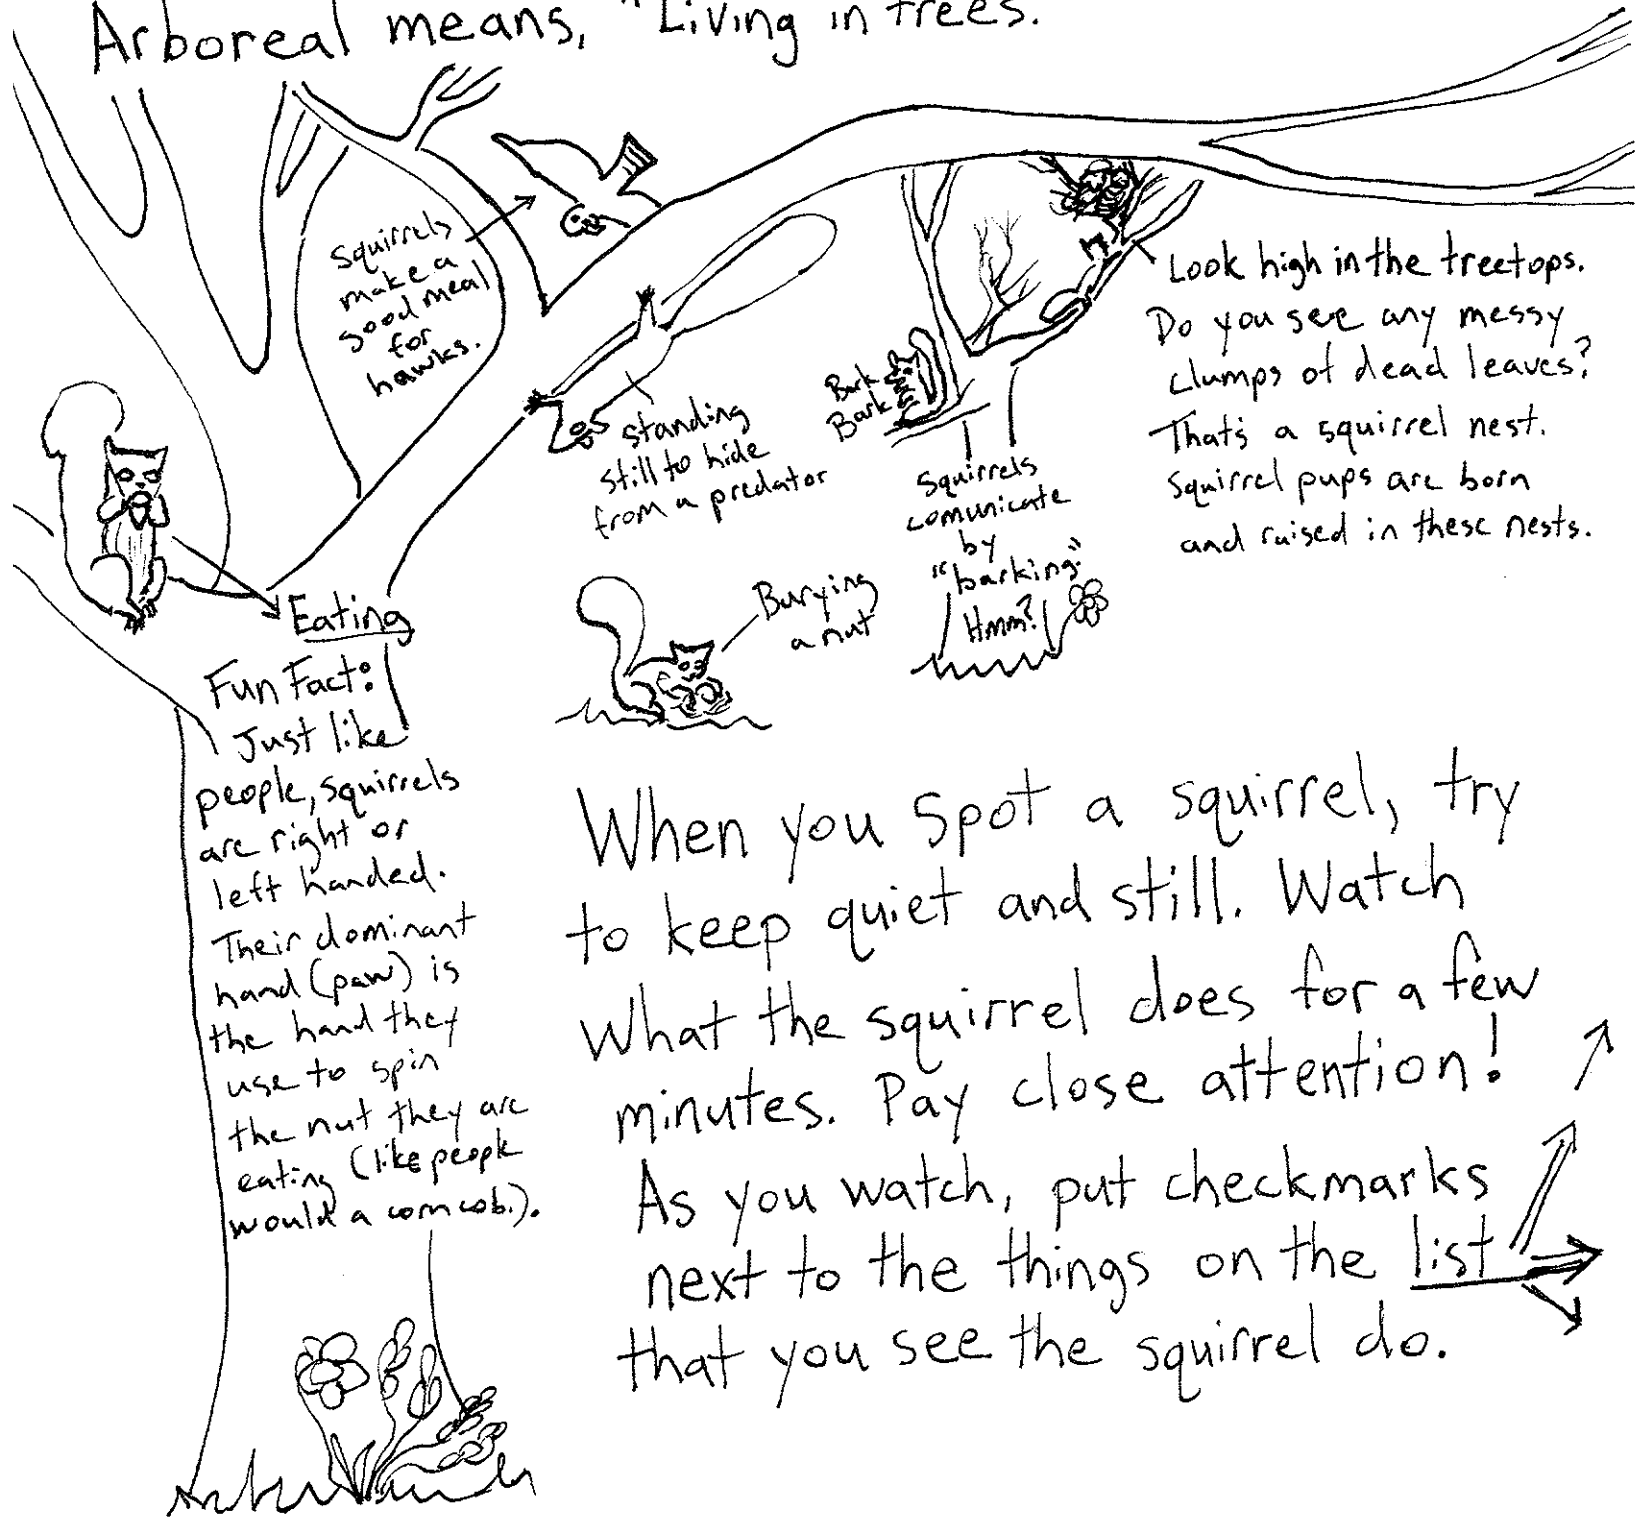 Arboreal means, "Living in trees.
Squirrels
make a
good meal
for
hawks.
Standing
still to hide
from a predator
Bark
Bark
Squirrels
comunicate
by
"barking."
Hmm?
Look high in the treetops.
Do you see any messy
clumps of dead leaves?
That's a squirrel nest.
Squirrel pups are born
and raised in these nests.
Burying
a nut
Eating
Fun Fact:
Just like
people, squirrels
are right or
left handed.
Their dominant
hand (paw) is
the hand they
use to spin
the nut they are
eating (like people
would a corncob.).
When you spot a squirrel, try
to keep quiet and still. Watch
What the squirrel does for a few
minutes. Pay close attention!
As you watch, put checkmarks
next to the things on the list
that you see the squirrel do.